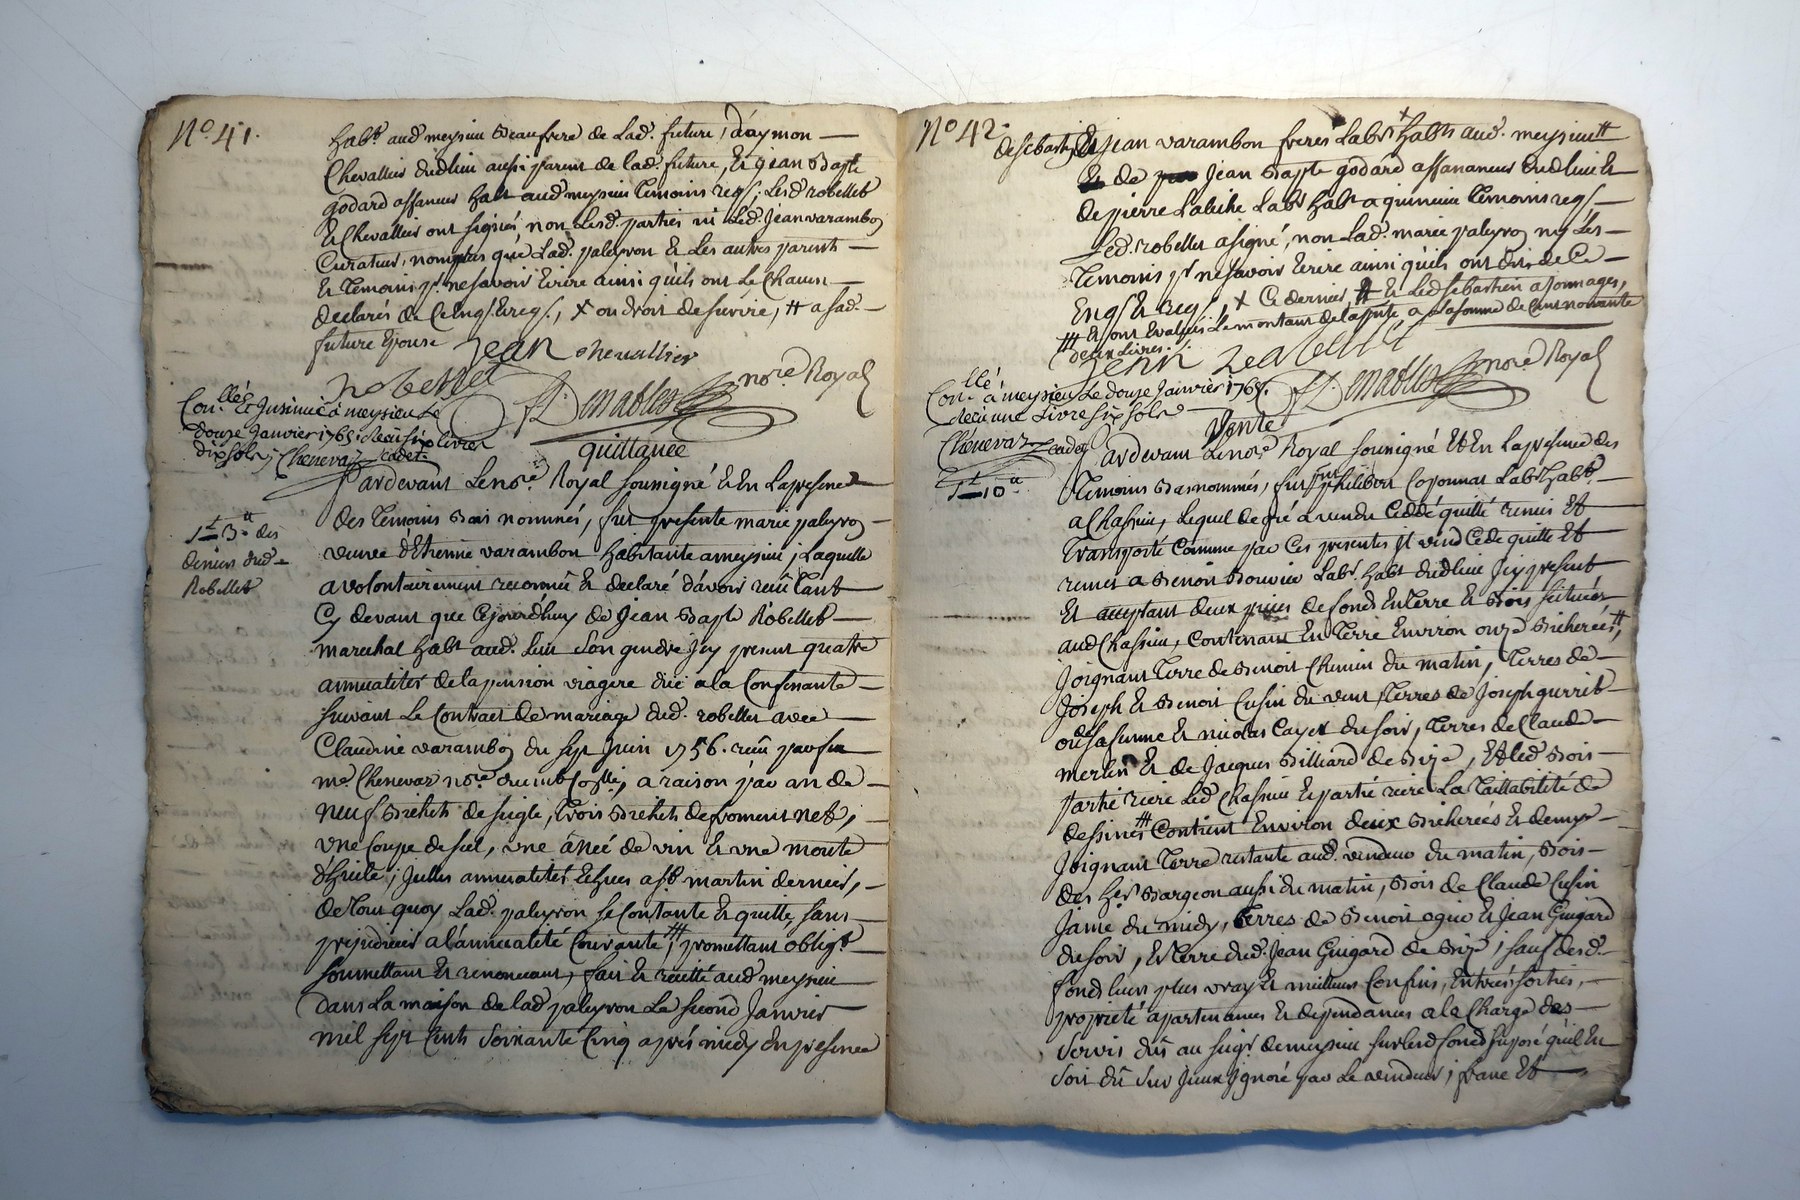 No. 41.
habt. aud. meysieu Beaufrere de Lad. future, d'aymon
Chevallier dud. lieu aussi parent de lad. future, Et jean Bapte
godard affaneur habt aud. meysieu temoins reqs; Lesd. robellet
Et Chevallier ont signés, non Lesd. parties ni Led. jean varambon
Curateur, nomplus que Lad. paleyron Et Les autres parents
Et temoins pr. ne savoir Ecrire ainsi qu'ils ont Le Chacun
declarés de Ce Enqs. Et reqs., X ou droit de survie, # a sad.
future Epouse
jean chevallier
robellet
Demables nore. Royal
Con.llé Et Insinué a meysieu Le
douze janvier 1765. Reçu six livres
dix sols; Chenevaz cadet.
quittance
Pardevant Le nore. Royal soussigné Et En La presence
des temoins Bas nommés, fut presente marie paleyron
veuve d'Etienne varambon habitante a meysieu; Laquelle
a volontairement reconnu Et declaré d'avoir reçu tant
Cy devant que Cejourd'huy de jean Bapte Robellet
marechal habt aud. Lieu son gendre jcy present quatre
annualités de la pension viagere düe a la Confessante
suivant Le Contract de mariage dud. robellet avec
Claudine varambon du sept juin 1756. reçu par feu
me. Chenevaz nore. duement Collé., a raison par an de
neuf Bichets de seigle, trois Bichets de froment net,
une Coupe de sel, une ânée de vin Et une
d'huile; jcelles annualités Echues a st. martin dernier,
de tout quoy Lad. paleyron se Contente Et quitte, sans
prejudicier a l'annualité Courante; promettant obligt.
soumettant Et renonceant, fait Et recitté aud. meysieu
dans La maison de lad. paleyron Le second janvier
mil sept Cents soixante Cinq après midy En presence
des
deniers dud.
Robellet
No. 42.
de sebastien Et jean varambon freres Labrs habts aud. meysieu
de jean Bapte godard affananeur dud. lieu Et
de pierre Labiche Labr habt a temoins reqs
Led. robellet a signé, non Lad. marie paleyron ny Les
temoins pr ne savoir Ecrire ainsi qu'ils ont dits de Ce
Enqs Et reqs, X Ce dernier, # Et Led. sebastien
Et sont Evalués Le montant de la a la somme de Cent nonante
deux Livres.
jean robellet
Demables nore. Royal
Con.llé a meysieu Le douze janvier 1765.
reçu une Livre six sols
Chenevaz cadet
Vente
Pardevant Le nore. Royal soussigné Et En La presence des
temoins Bas nommés, fut present philibert Coponnat Labr. habt.
a Chassieu, Lequel de gré a vendu Cedé quitté remis Et
transporté Comme par Ces presentes Il vend Cede quitte Et
remet a Benoit Bouvier Labr. habt dud. lieu jcy present
Et acceptant deux pieces de fonds En Terre Et Bois scituées
aud. Chassieu, Contenant En Terre Environ onze Bicherées,
joignant Terre de Benoit Chemin du matin, Terres de
joseph Et Benoit Cusin du vent, terres de joseph
ou de sa femme Et nicolas Cayet du soir, Terres de Claude
merlin Et de jacques Billiard de Bize, Et led. Bois
partie riere Led. Chassieu Et partie riere La Taillabilité de
dessines Contient Environ deux Bicherées Et demy
joignant Terre restante aud. vendeur du matin, Bois
des hers Bargeon aussi du matin, Bois de Claude Cusin
Jaime du midy, Terres de Benoit ogier Et jean Guigard
du soir, Et Terre dud. jean Guigard de Bize; sauf desd.
fonds Leurs plus vray Et meilleurs Confins, Entrées sorties,
proprieté apartenances Et dependances a la Charge des
servis dûs au seigr. de meysieu sur lesd. fonds suposé qu'il En
soit dû sur jceux jgnoré par Le vendeur; franc Et